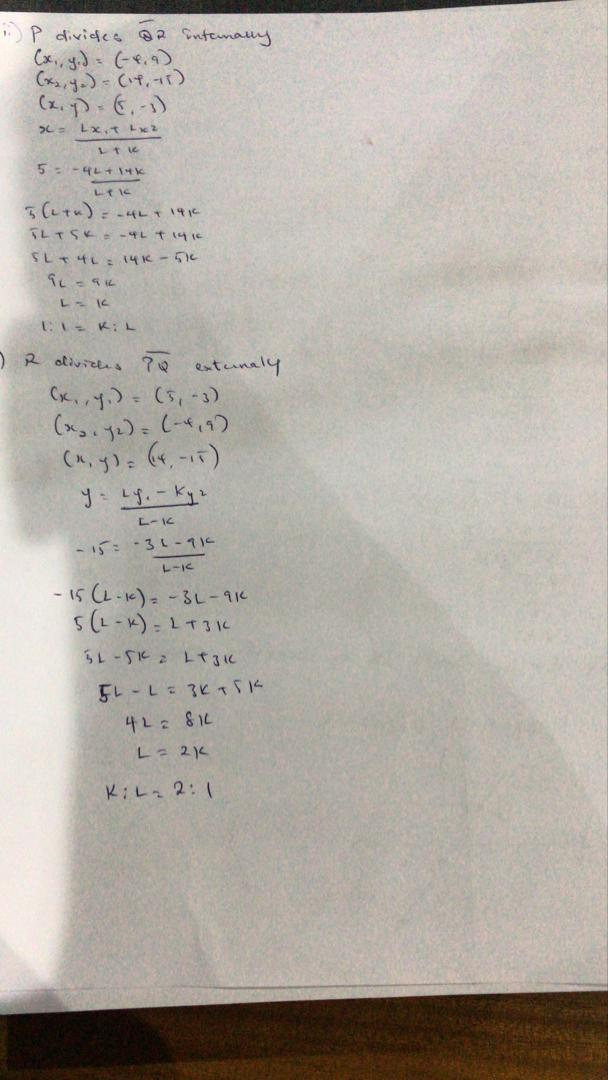 ii.) P divides QR internally
(x₁, y₁) = (-4, 9)
(x₂, y₂) = (14, -15)
(x, y) = (5, -3)
x = Lx₁ + Lx2 / L + K
5 = -4L + 14K / L + K
5(L+K) = -4L + 14K
5L + 5K = -4L + 14K
5L + 4L = 14K - 5K
9L = 9K
L = K
1:1 = K:L
) R divides PQ externaly
(x₁, y₁) = (5, -3)
(x₂, y2) = (-4, 9)
(x, y) = (14, -15)
y = Ly₁ - Ky2 / L-K
-15 = -3L - 9K / L-K
-15(L-K) = -3L - 9K
5(L-K) = L + 3K
5L - 5K = L + 3K
5L - L = 3K + 5K
4L = 8K
L = 2K
K:L = 2:1